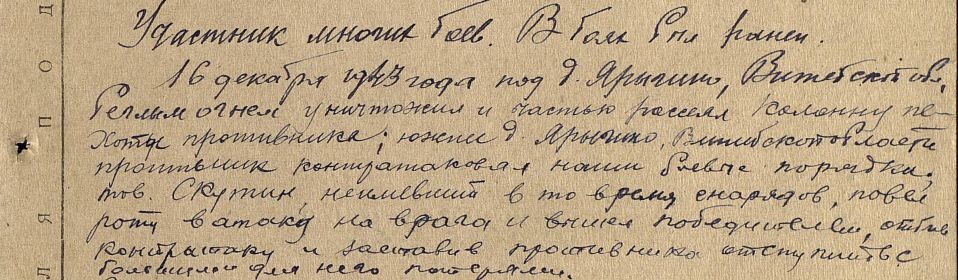 Участник многих боев. В боях был ранен.
16 декабря 1943 года под д. Ярыгино, Витебской обл.
Беглым огнем уничтожил и частью рассеял колонну пе-
хоты противника; южнее д. Ярыгино, Витебской области
противник контратаковал наши боевые порядки,
тов. Скутин, неимевший в то время снарядов, повел
роту в атаку на врага и вышел победителем, отбив
контратаку и заставив противника отступить с
большими для него потерями.